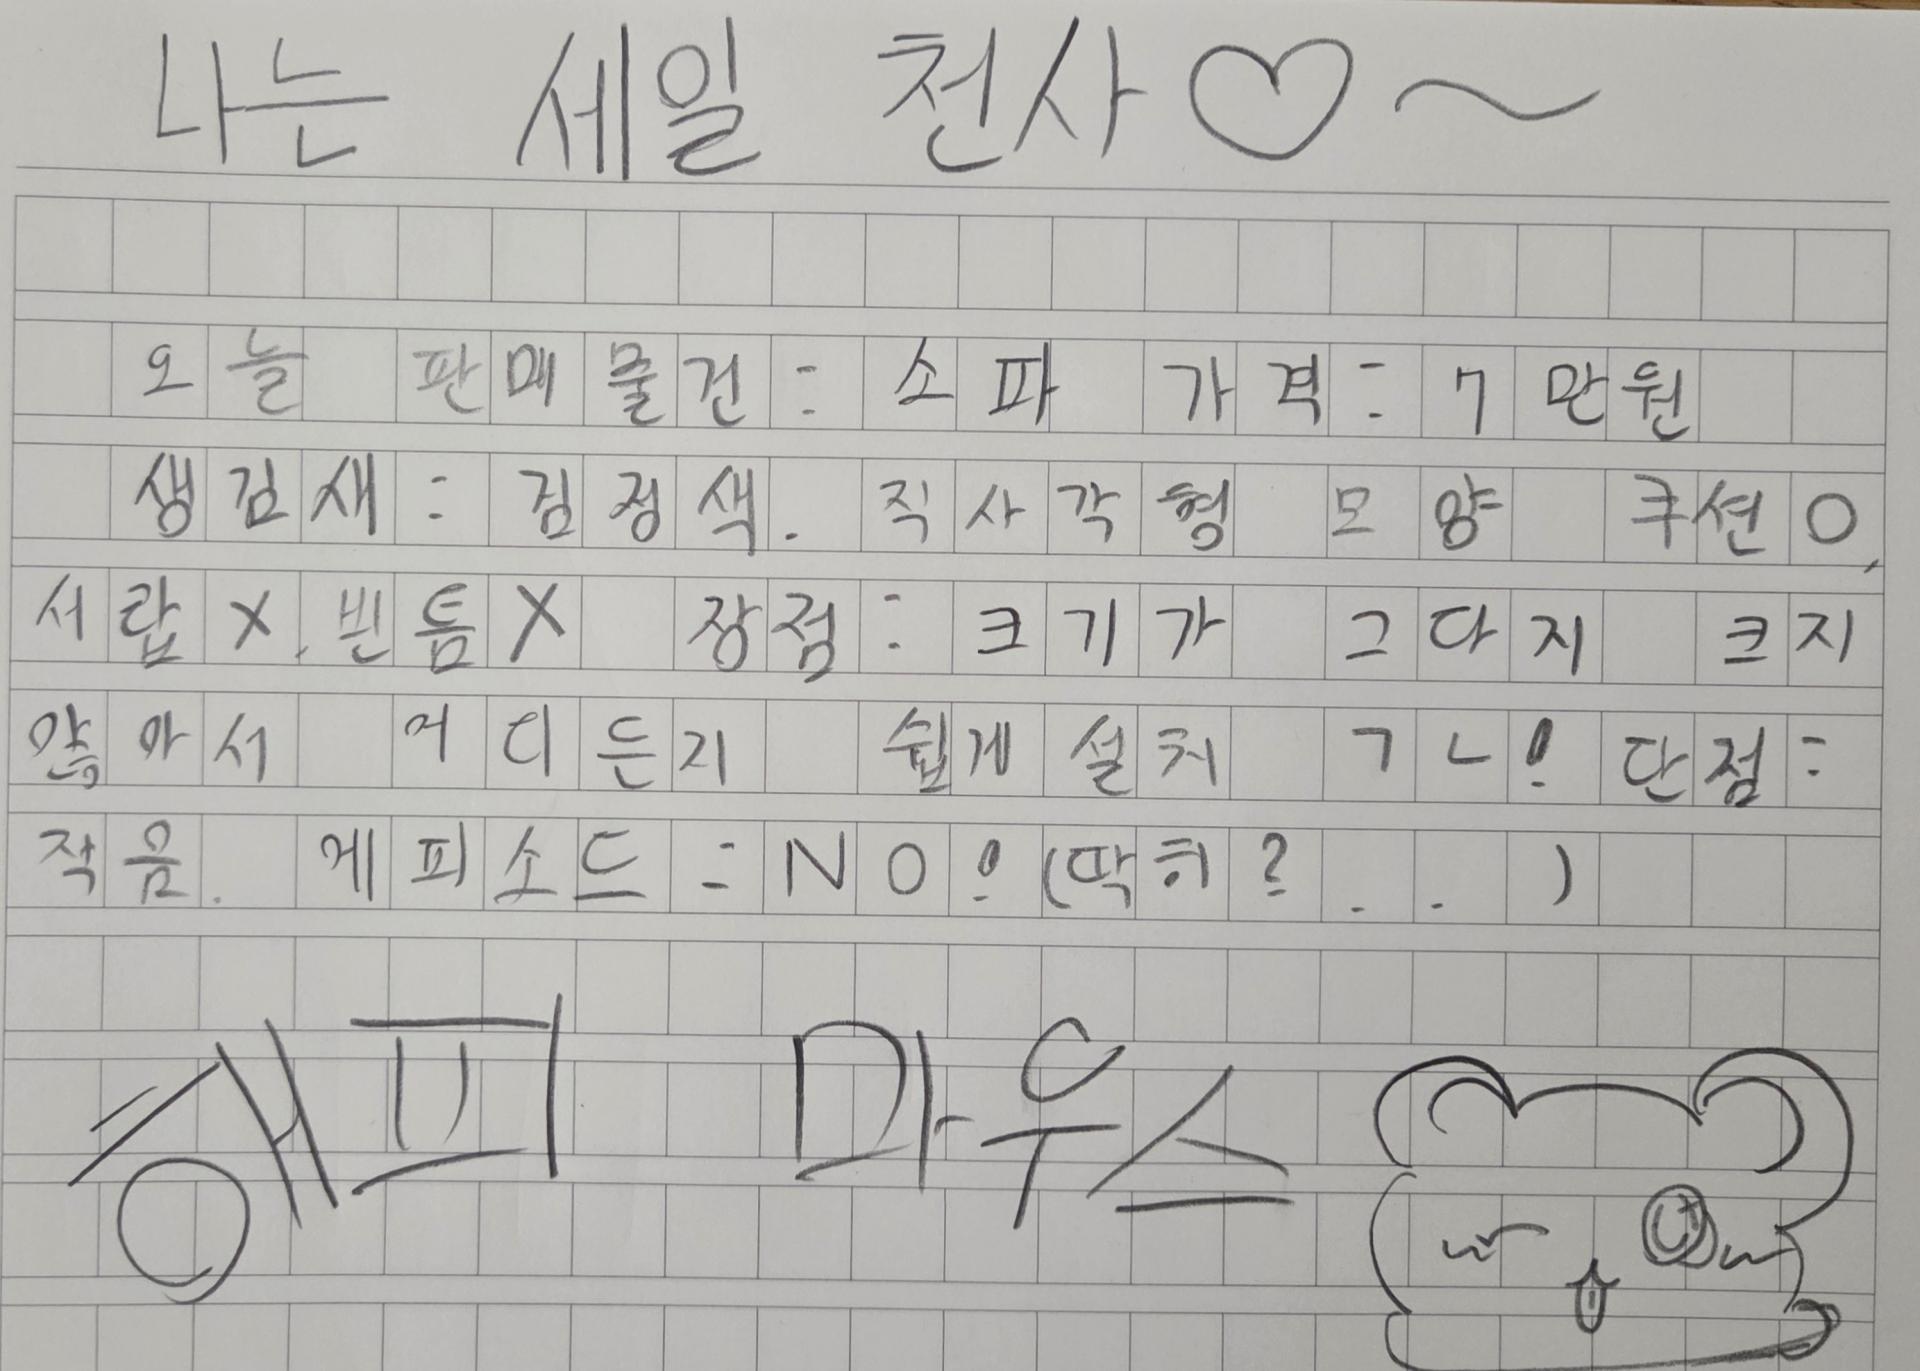 나는 세일 천사♡~
오늘 판매물건: 소파 가격: 7만원
생김새: 검정색. 직사각형 모양 쿠션O,
서랍X. 빈틈X 장점: 크기가 그다지 크지
않아서 어디든지 쉽게설치 ㄱㄴ! 단점:
작음. 에피소드:NO!(딱히?..)
햎피 마우스